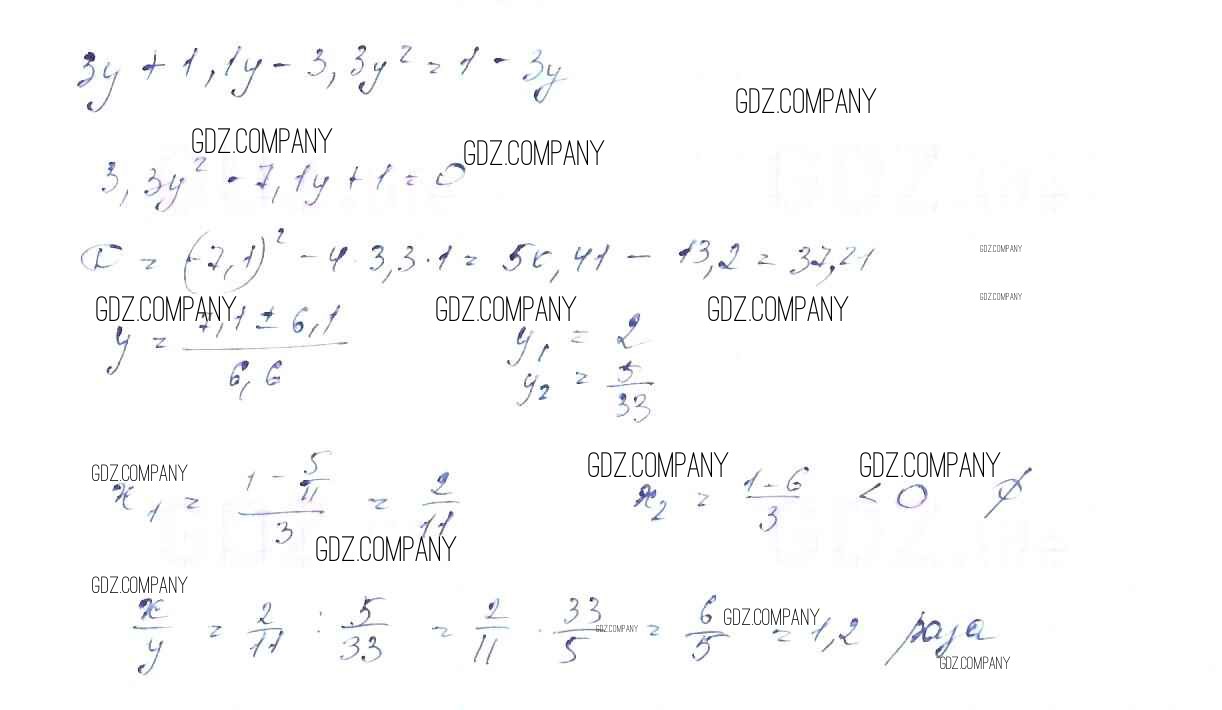 3y + 1,1y - 3,3y² = 1 - 3y
GDZ.COMPANY
GDZ.COMPANY GDZ.COMPANY
3,3y² - 7,1y + 1 = 0
D = (-7,1)² - 4 · 3,3 · 1 = 50,41 - 13,2 = 37,21
GDZ.COMPANY
GDZ.COMPANY
GDZ.COMPANY GDZ.COMPANY GDZ.COMPANY
y = (7,1 ± 6,1)/6,6 y₁ = 2
y₂ = 5/33
GDZ.COMPANY GDZ.COMPANY GDZ.COMPANY
x₁ = (1 - 5/11)/3 = 2/11 x₂ = (1-6)/3 < 0 ∅
GDZ.COMPANY
GDZ.COMPANY
x/y = 2/11 : 5/33 = 2/11 · 33/5 = 6/5 = 1,2 раза
GDZ.COMPANY GDZ.COMPANY
GDZ.COMPANY